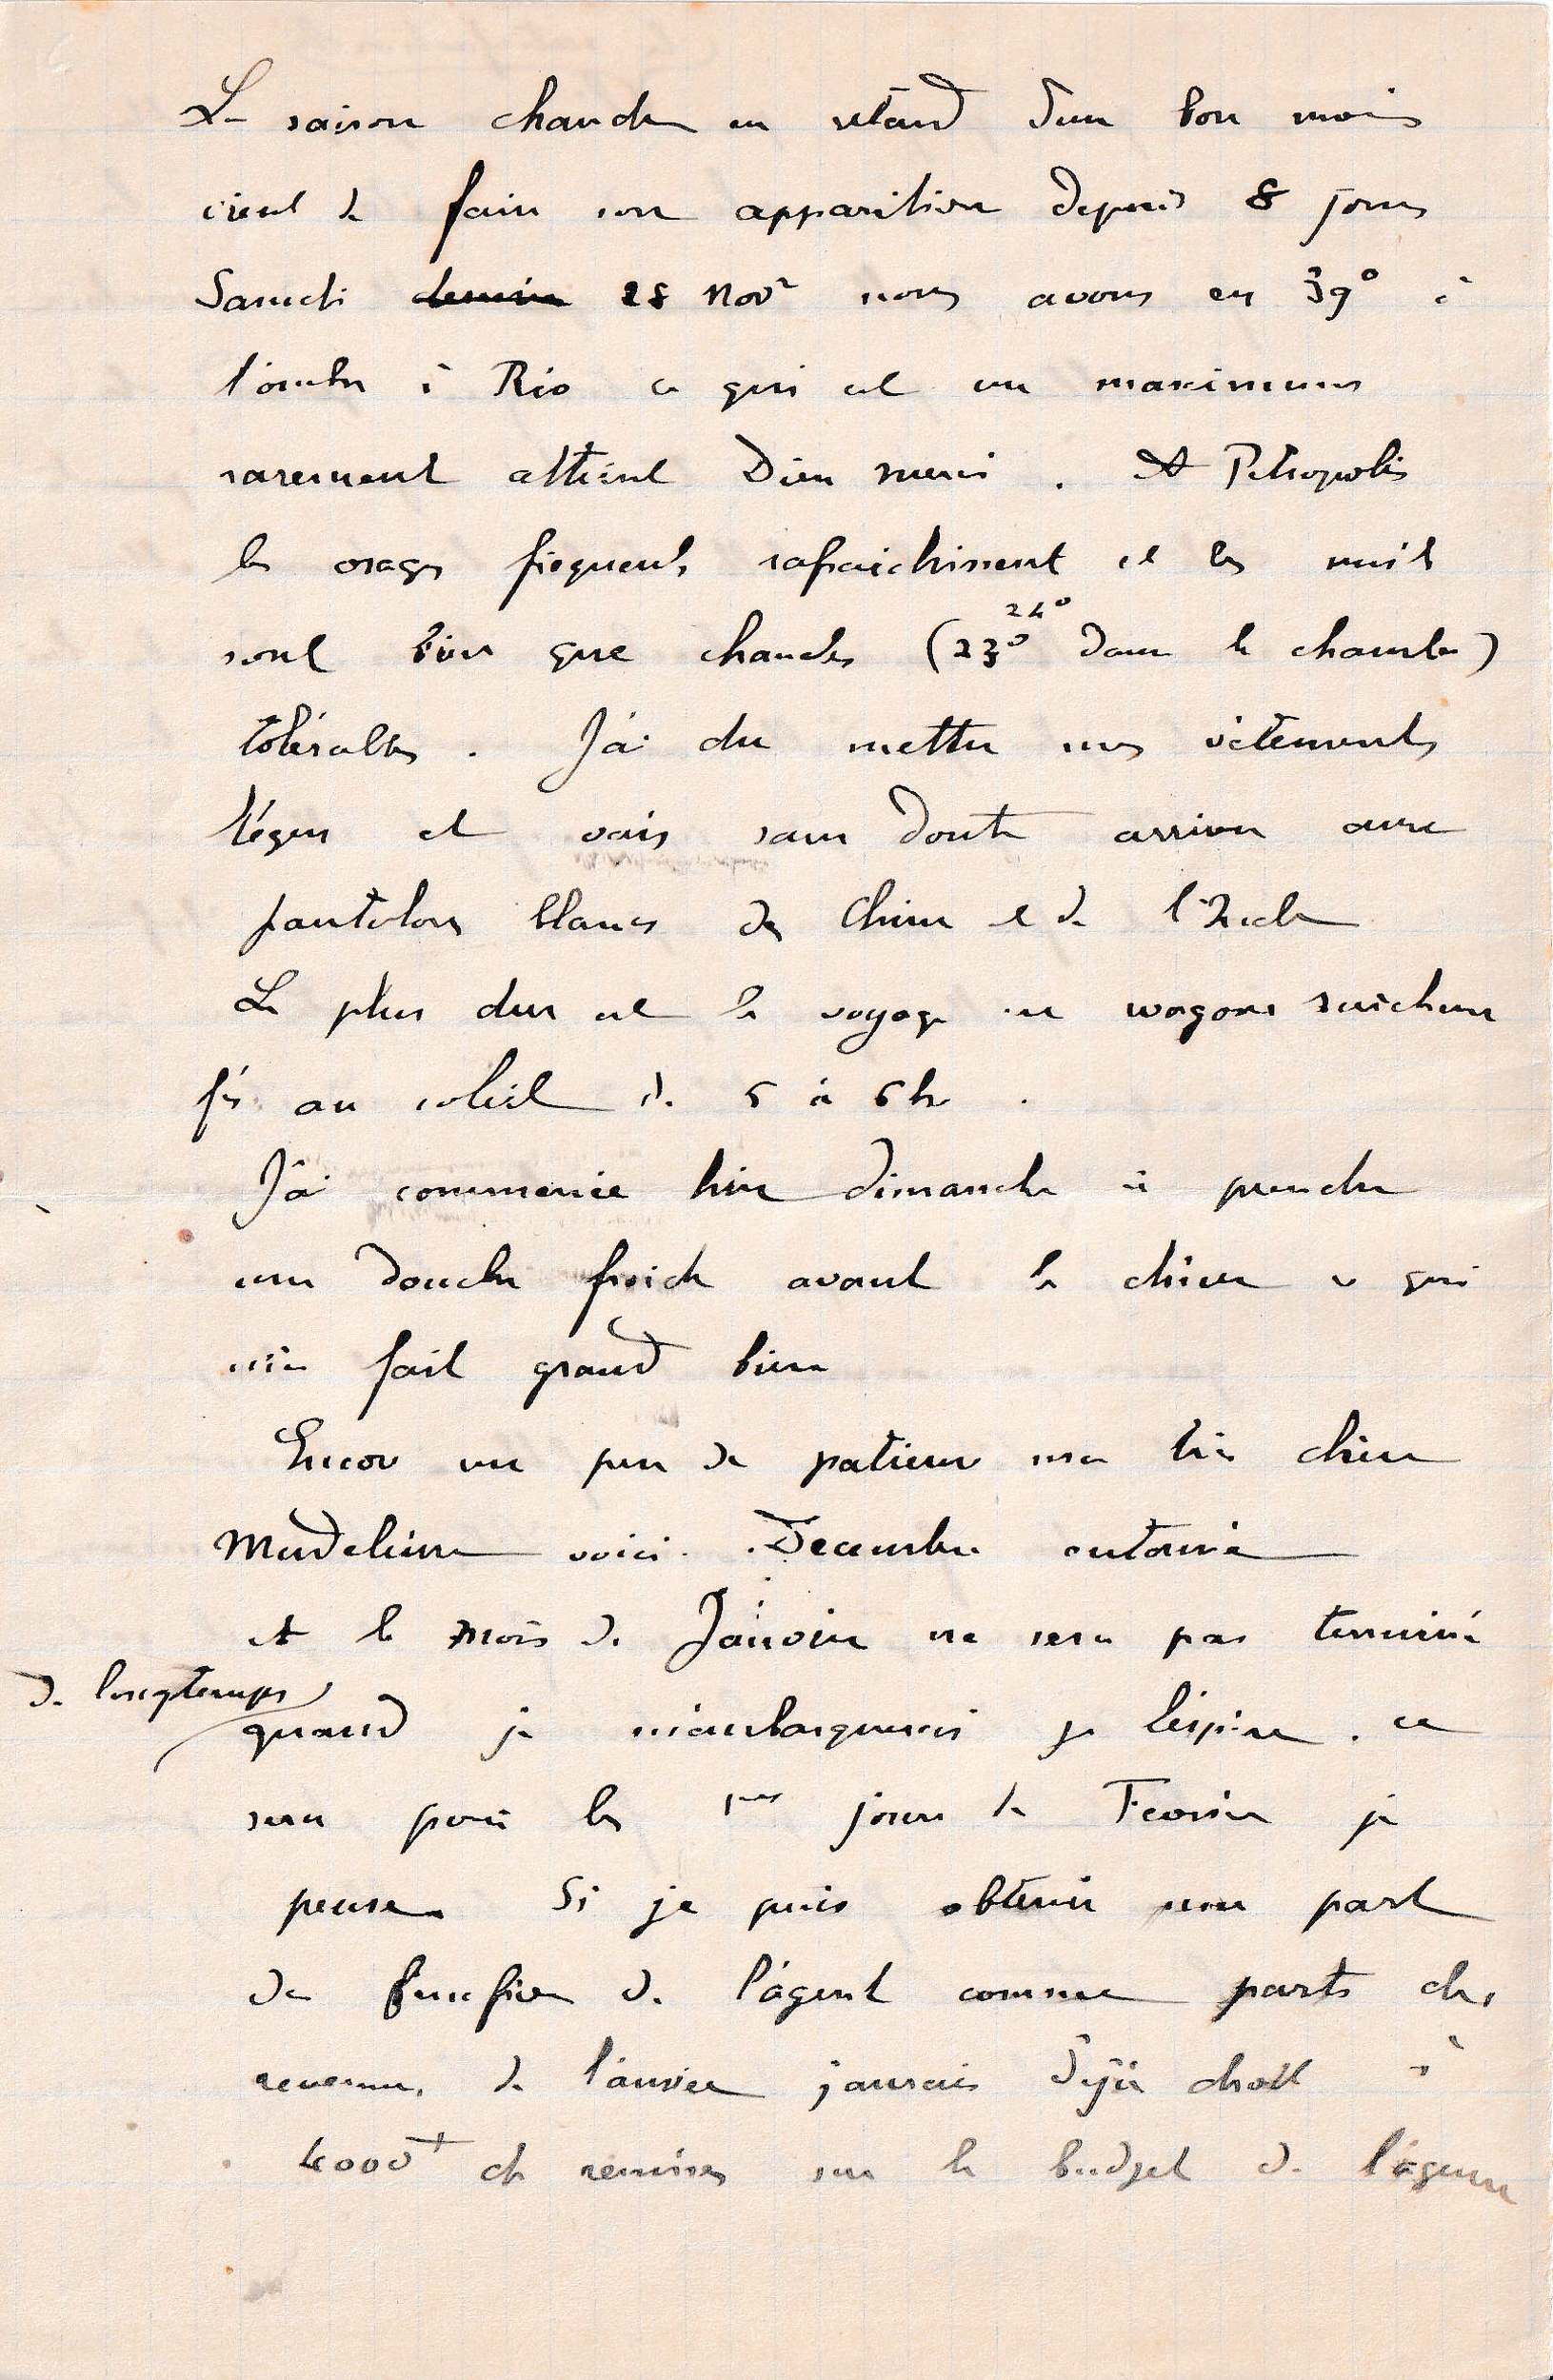 La saison chaude en retard d'un bon mois
vient de faire son apparition depuis 8 jours
Samedi dernier 28 Nov^r nous avons eu 39° à
l'ombre à Rio ce qui est un maximum
rarement atteint Dieu merci . A Petropolis
les orages fréquents rafraichissent et les nuits
sont bien que chaudes (23° 24° dans la chambre)
tolérables . J'ai du mettre mes vêtements
légers et vais sans doute arriver aux
pantalons blancs de Chine et de l'Inde
Le plus dur est le voyage en wagons surchauf
fés au soleil de 5 à 6h .
J'ai commencé hier dimanche à prendre
une douche froide avant le diner ce qui
m'a fait grand bien
Encore un peu de patience ma très chère
Madeleine voici Decembre entamé
et le mois de Janvier ne sera pas terminé
de longtemps
quand je m'embarquerai je l'espère . ce
sera pour les 1^ers jours de Fevrier je
pense Si je puis obtenir une part
de benefice de l'agent comme parts des
revenus de l'année j'aurais déjà droit à
4000^f de remises sur le budget de l'agence